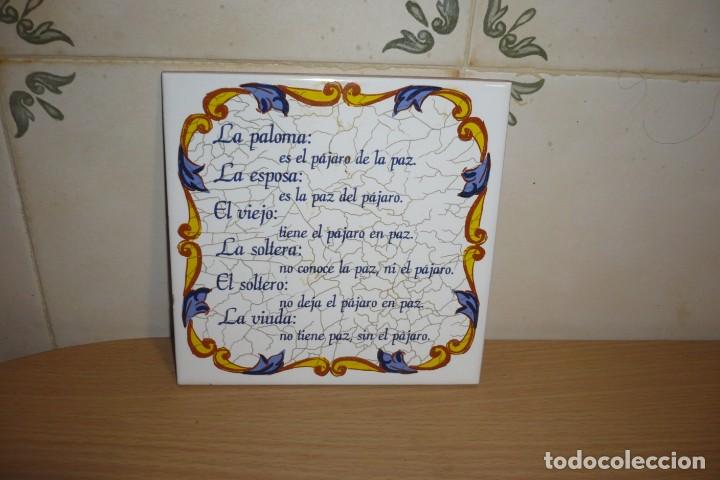 La paloma:
es el pájaro de la paz.
La esposa:
es la paz del pájaro.
El viejo:
tiene el pájaro en paz.
La soltera:
no conoce la paz, ni el pájaro.
El soltero:
no deja el pájaro en paz.
La viuda:
no tiene paz, sin el pájaro.
todocoleccion